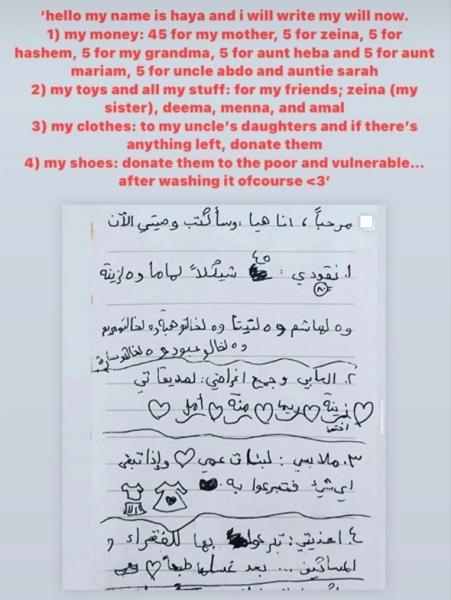 ‘hello my name is haya and i will write my will now.
1) my money: 45 for my mother, 5 for zeina, 5 for
hashem, 5 for my grandma, 5 for aunt heba and 5 for aunt
mariam, 5 for uncle abdo and auntie sarah
2) my toys and all my stuff: for my friends; zeina (my
sister), deema, menna, and amal
3) my clothes: to my uncle’s daughters and if there’s
anything left, donate them
4) my shoes: donate them to the poor and vulnerable...
after washing it ofcourse <3’
مرحباً ، انا هيا ، وسأكتب وصيتي الآن
١. نقودي : ٤٥ شيكلاً لماما و٥ لزينة
و٥ لهاشم و٥ لتيتا و٥ لخالتو هبة و٥ لخالتو مريم
و٥ لخالو عبود و٥ لخالتو سارة
٢. العابي و جميع اغراضي : لصديقاتي
زينة ريما منة أمل
اختي
٣. ملابسي : لبنات عمي وإذا تبقى
اي شيء فتبرعوا به
٤. احذيتي : تبرعوا بها للفقراء و
المساكين ... بعد غسلها طبعاً